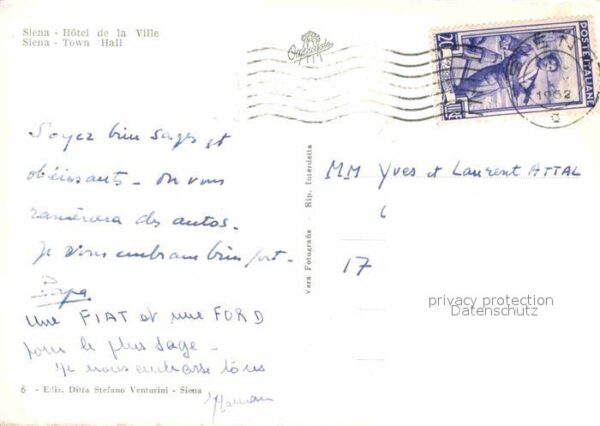 Siena - Hôtel de la Ville
Siena - Town Hall
POSTE ITALIANE
1952
Soyez bien sages et
obéissants - on vous
ramènera des autos.
je vous embrasse bien fort -
Papa
Une FIAT et une FORD
pour le plus sage -
je vous embrasse tous
Maman
6 - Ediz. Ditta Stefano Venturini - Siena
Vera Fotografia - Rip. Interdetta
MM Yves et Laurent ATTAL
17
privacy protection
Datenschutz